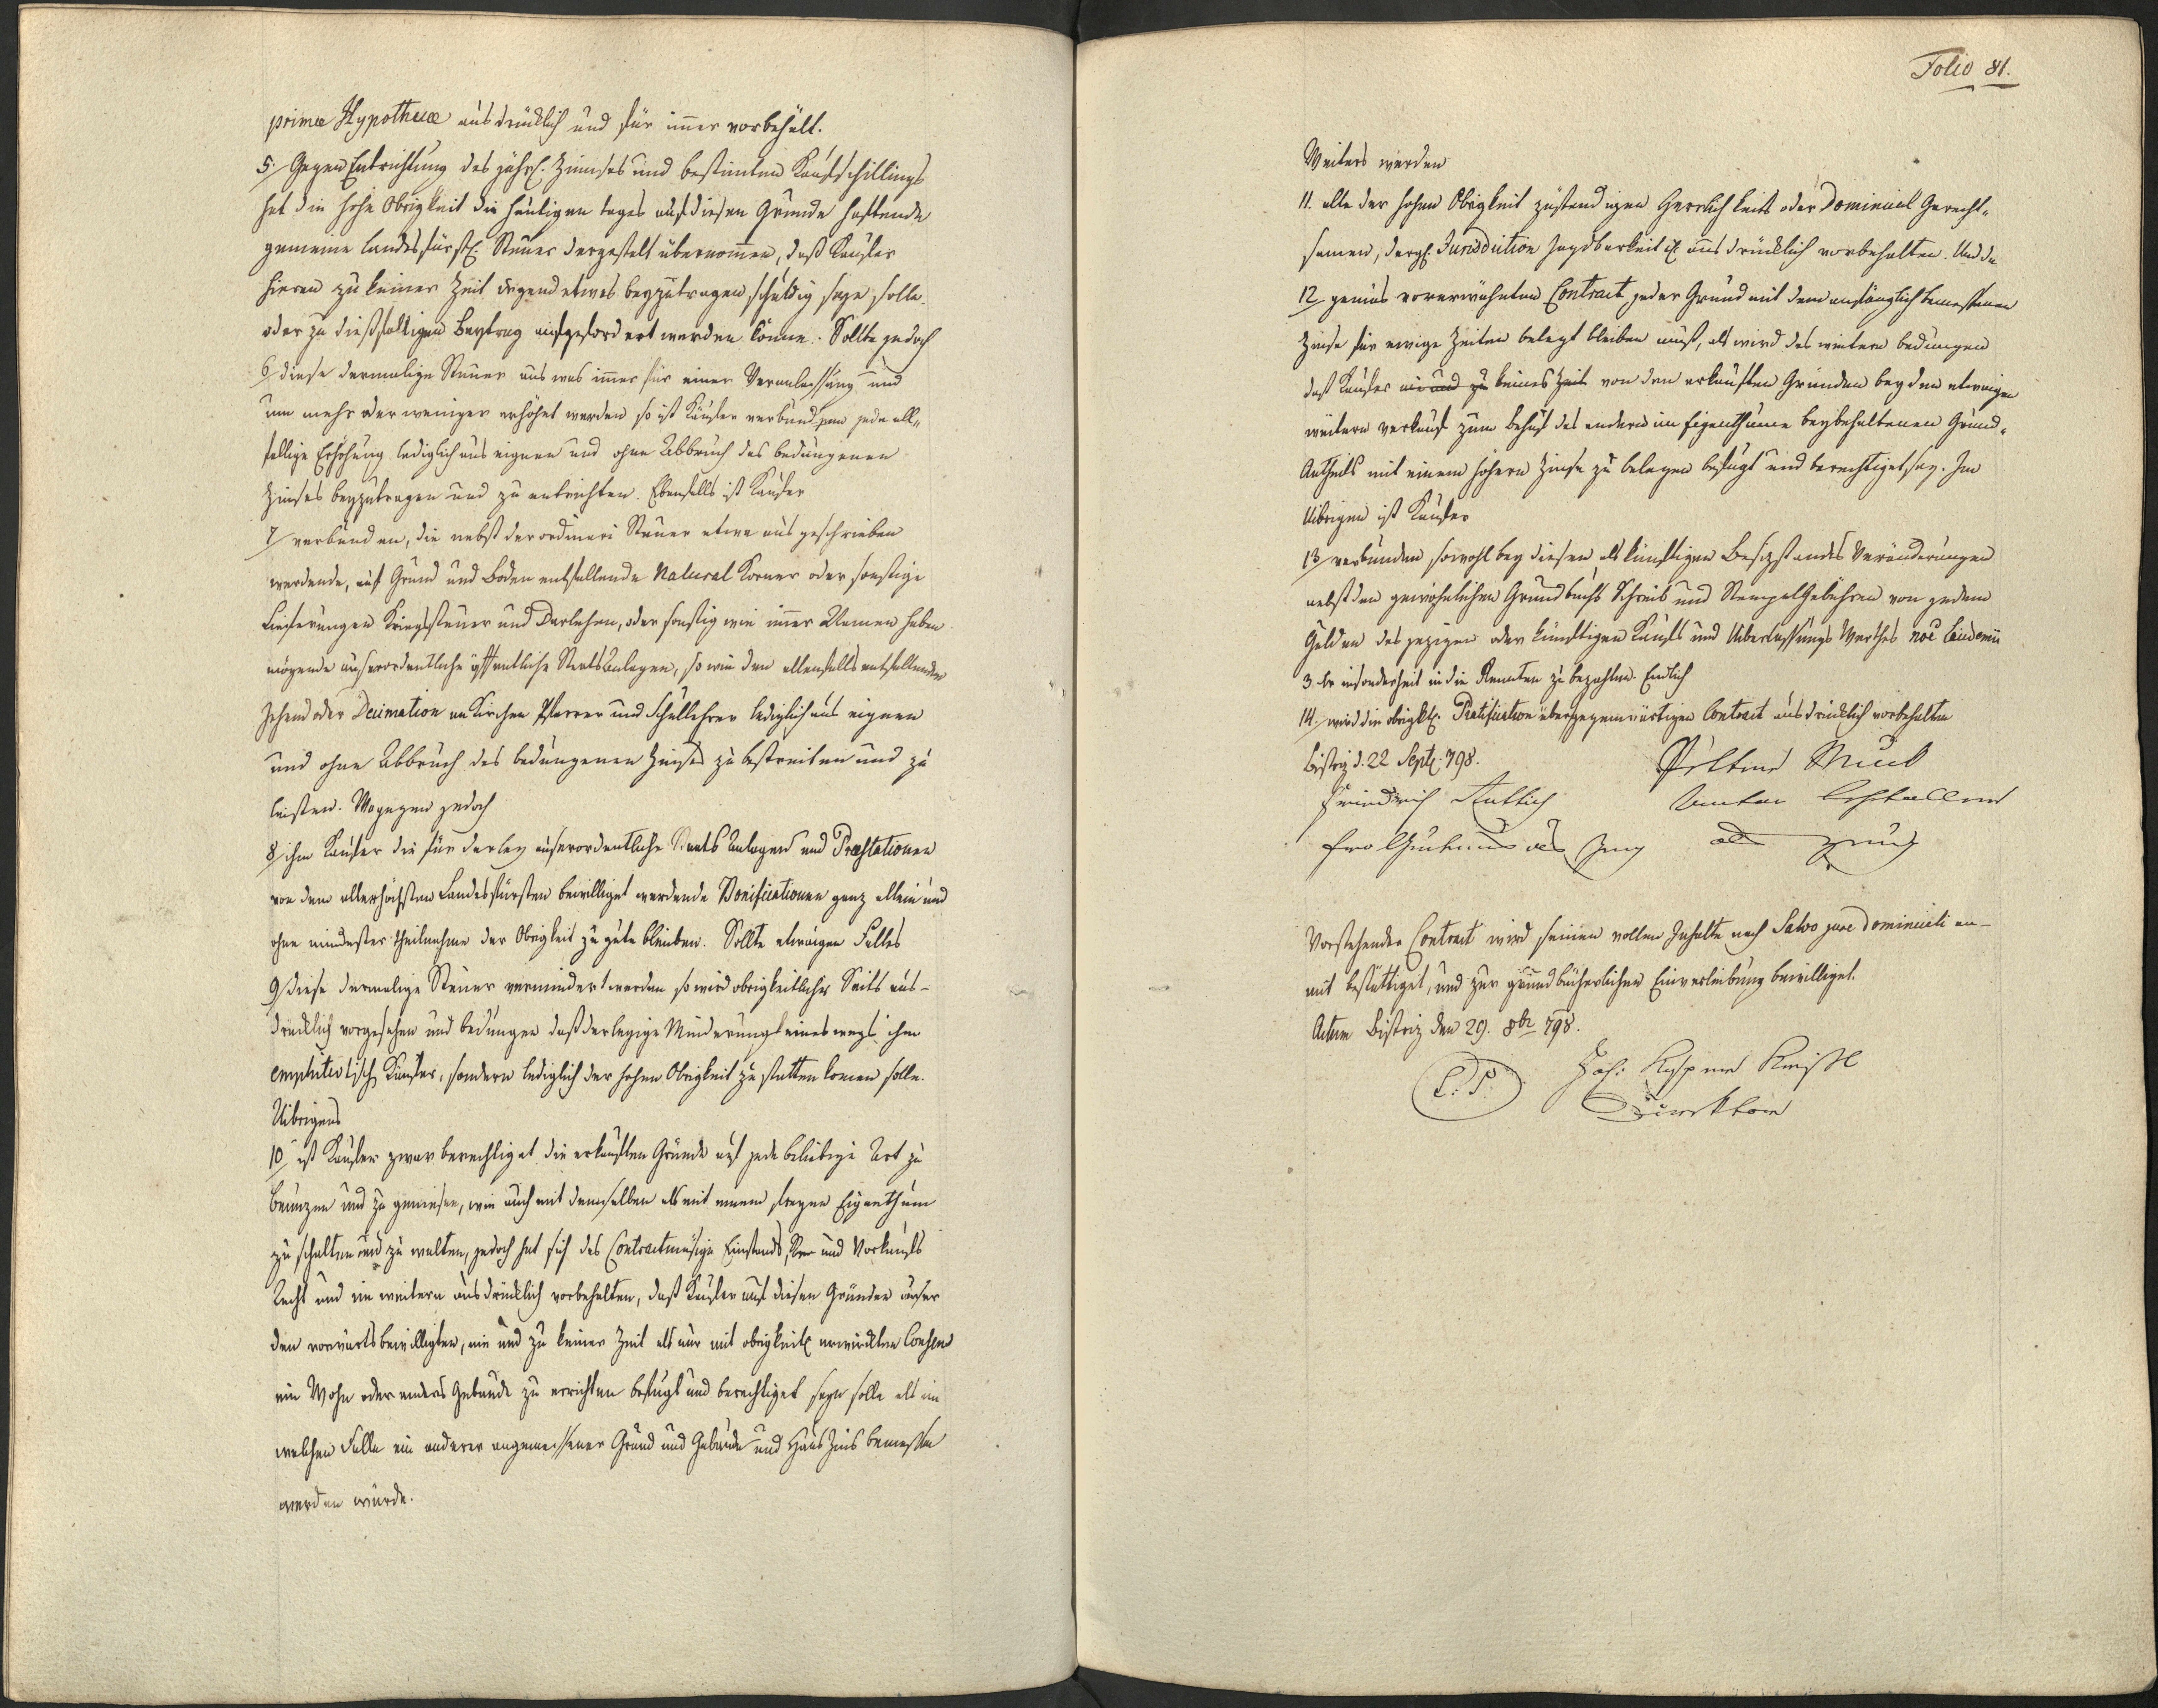 primæ Hypothecæ ausdrücklich und für im̅er vorbehält.
5./ Gegen Entrichtung des jährl. Zinnses und bestimten Kaufschillings
hat die hohe Obrigkeit die heutigen tages auf diesen Grunde haftende
gemeine landesfürstl. Steuer dergestalt übernom̅en, daß Kaufer
hieran zu keiner Zeit irgend etwas beyzutragen schuldig seye solle.
oder zu dießfältigen Beytrag aufgefordert werden könne. Sollte jedoch
6/ diese dermalige Steuer aus was im̅er für einer Veranlassung und
um mehr oder weniger erhöhet werden so ist Käufer verbunden jede all„
fällige Erhöhung lediglich aus eignen und ohne Abbruch des bedungenen
Zinses beyzutragen und zu entrichten. Ebenfalls ist Kaufer
7/ verbunden, die nebst der ordinari Steuer etwa ausgeschrieben
werdende, auf Grund und Boden entfallende Natural Körner oder sonstige
Lieferungen Kriegssteuer und Darlehen, oder sonstig wie im̅er Namen haben
mögende auserordentliche öffentliche Staats Anlagen, so wie den allenfalls entfallenden
Zehend oder Decimation an Kirchen Pfarrer und Schullehrer lediglich aus eignen
und ohne Abbruch des bedungenen Zinses zu bestreiten und zu
leisten. Wogegen jedoch
8/ ihm Kaufer die für derley auserordentliche Staats Anlagen und Præstationen
von dem allerhöchsten Landesfürsten bewilliget werdende Bonificationen ganz allein und
ohne mindester theilnahme der Obrigkeit zu gute bleiben. Sollte etwaigen Falles
9/ diese dermalige Steuer vermindert werden so wird obrigkeitlicher Seits aus-
drücklich vorgesehen und bedungen daß derleyige Minderung keines wegs ihm
emphitevtisch Kaufer, sondern lediglich der hohen Obrigkeit zu statten kom̅en solle.
Uibrigens
10/ ist Kaufer zwar berechtiget die erkauften Gründe auf jede beliebige Art zu
benuzen und zu geniesen, wie auch mit demselben als mit einem freyen Eigenthum
zu schalten und zu walten, jedoch hat sich des Contractmäsige Einstands, und Vorkaufs
Recht und im weitern ausdrücklich vorbehalten, daß Kaufer auf diesen Gründen auser
den vorwärts bewilligten, nie und zu keiner Zeit als nur mit obrigkeitl erwirkten Consens
ein Wohn oder anders Gebäude zu errichten befugt und berechtiget seyn solle als in
welchen Falle ein anderer angemessener Grund und Gebäude und Haus Zins bemessen
werden würde.
Folio 81.
Weiters werden
11. alle der hohen Obrigkeit zustendigen Herrlichkeits oder Dominical Gerecht„
samen, dergl. Jurisdiction Jagdbarkeit ausdrücklich vorbehalten. Und da
12/ gemäs vorerwähnten Contract, jeder Grund mit dem anfänglich bemessenen
Zinse für ewige Zeiten belegt bleiben muß, als wird des weitern bedungen
daß Kaufer nie und zu keines Zeit von den erkauften Gründen bey den etwaigen
weitern verkauf zum behuf des andern im Eigenthume beybehaltenen Grund-
Antheils mit einem höhern Zinse zu belegen befugt und berechtiget sey. Im
Uibrigen ist Kaufer
13/ verbunden sowohl bey diesen, als künftigen Besizstandes Veränderungen
nebst den gewöhnlichen Grundbuchs Schreib und Stempel Gebühren von jedem
Gulden des jezigen oder künftigen Kaufs und Uiberlassungs Werthes noe Laudemii
3 kr insonderheit in die Renten zu bezahlen. Endlich
14. wird die obrigktl. Ratification über gegenwärtigen Contract ausdrücklich vorbehalten
Bistriz d. 22 Septb. 798.
Friedrich
als Zeug als Zeug
Vorstehender Contract wird seinen vollen Inhalte nach Salvo jure Dominicali an-
mit bestättiget, und zur grundbücherlichen Einverleibung bewilliget.
Actum Bistriz den 29. 8br 798.
L. S. Joh:
Direktor